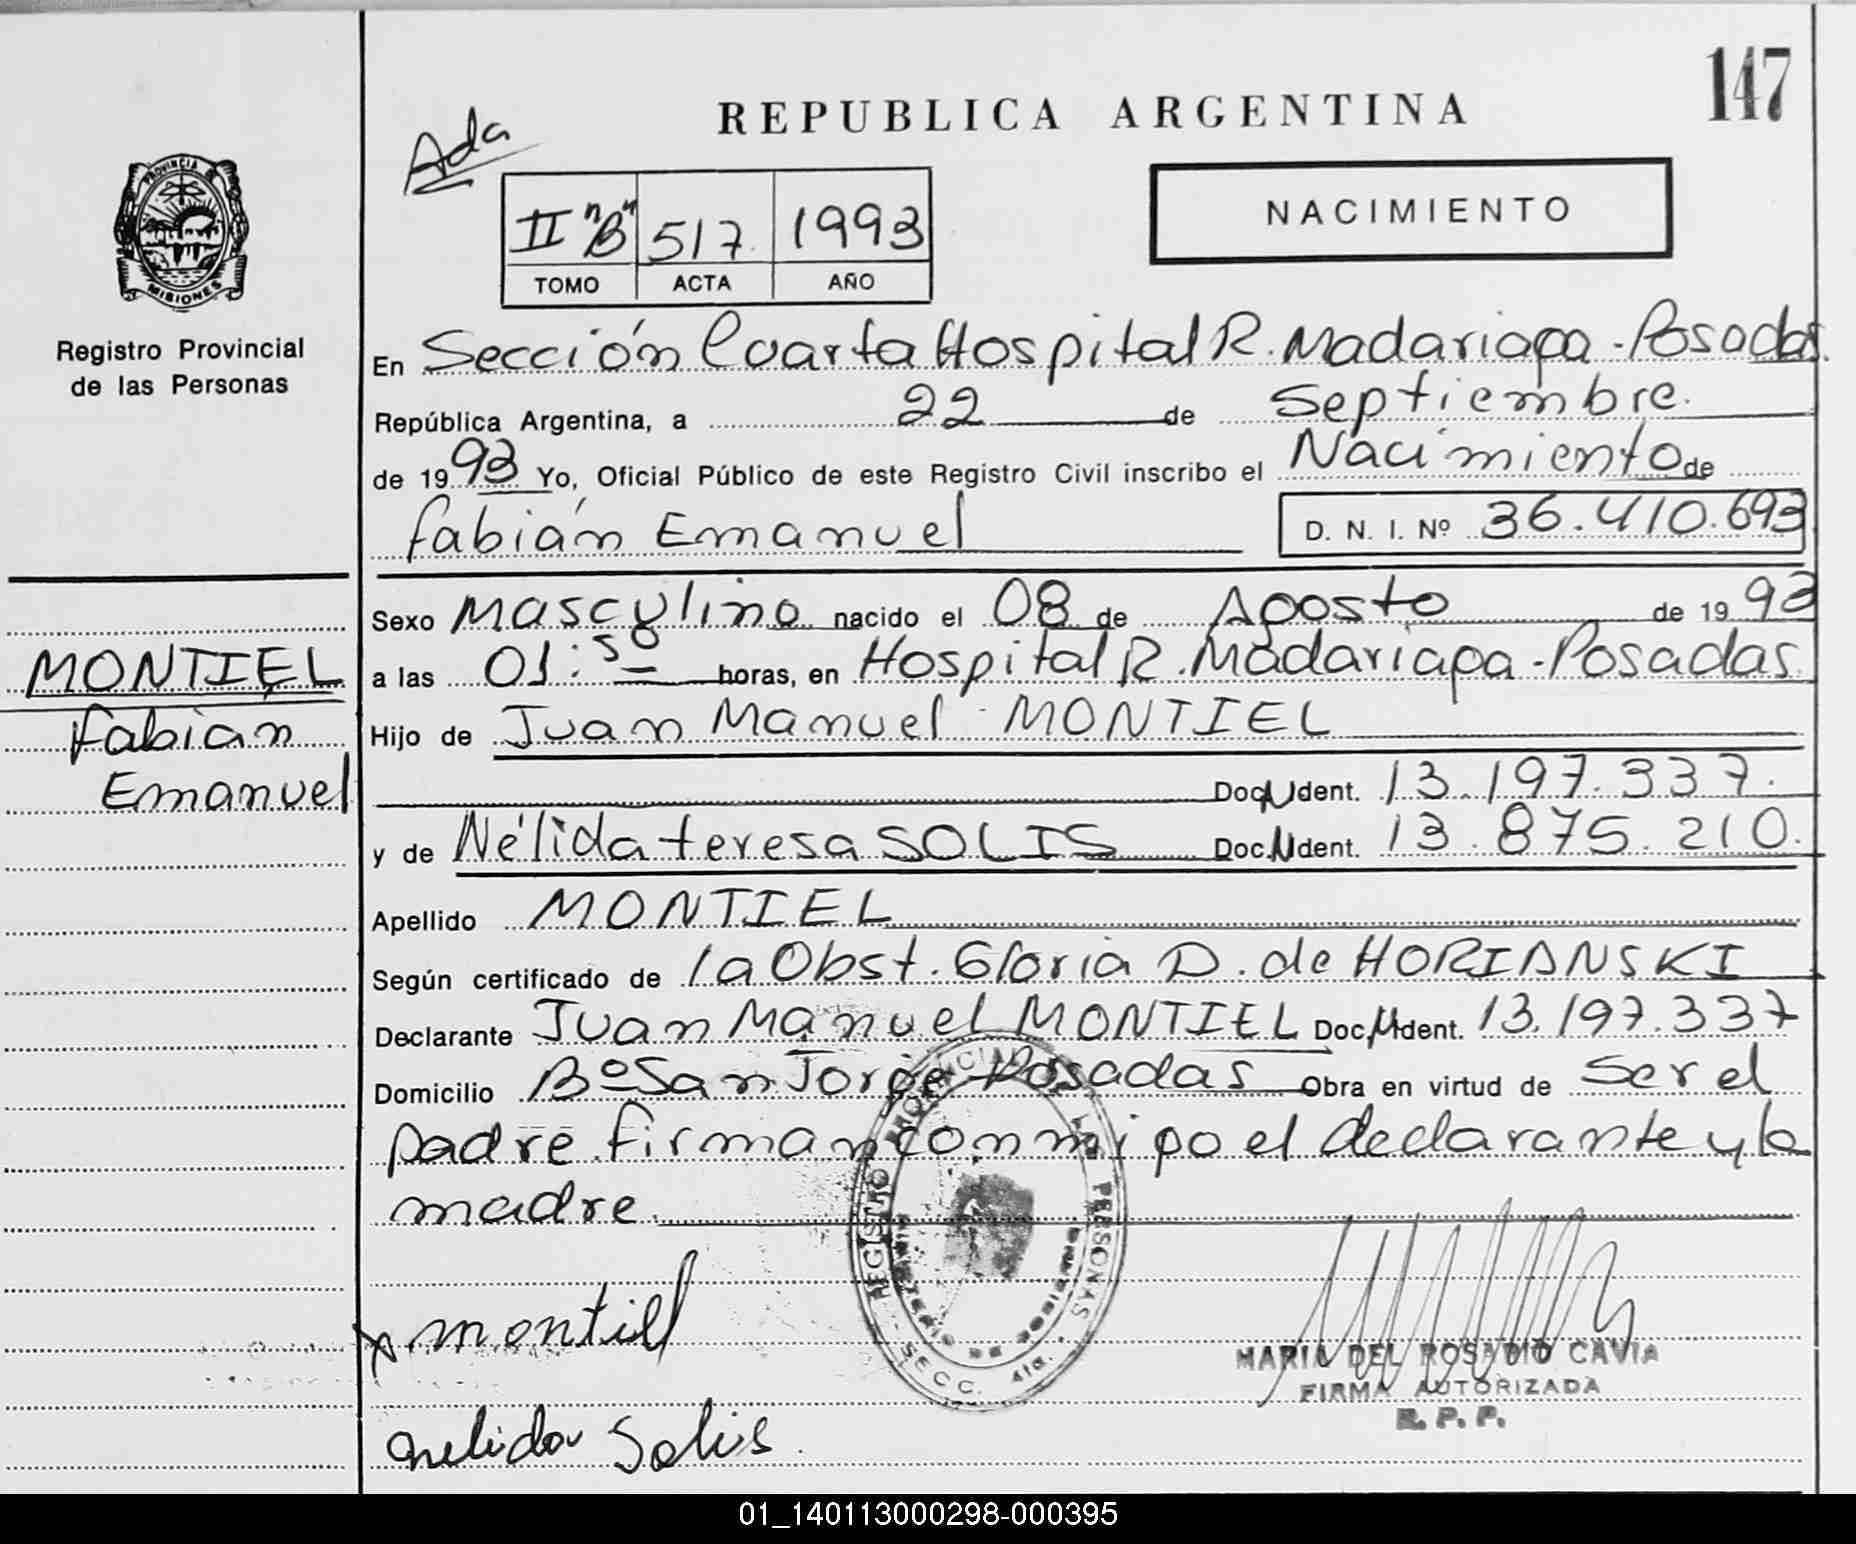 147
REPUBLICA ARGENTINA
Ada
II "B" 517 1993
TOMO ACTA AÑO
NACIMIENTO
PROVINCIA
MISIONES
Registro Provincial
de las Personas
En Sección Cuarta Hospital R. Madariaga - Posadas.
República Argentina, a 22 de Septiembre.
de 1993 Yo, Oficial Público de este Registro Civil inscribo el Nacimiento de
Fabián Emanuel D. N. I. Nº 36.410.693
Sexo Masculino nacido el 08 de Agosto de 1993
a las 01:50 horas, en Hospital R. Madariaga - Posadas.
Hijo de Juan Manuel MONTIEL
Doc. N Ident. 13.197.337.
y de Nélida teresa SOLIS Doc. N Ident. 13.875.210.
Apellido MONTIEL
Según certificado de la Obst. Gloria D. de HORIANSKI
Declarante Juan Manuel MONTIEL Doc. N Ident. 13.197.337
Domicilio Bº San Jorge Posadas Obra en virtud de Ser el
padre. firman conmigo el declarante y la
madre.
MONTIEL
Fabián
Emanuel
montiel
nelida Solis
REGISTRO PROVINCIAL DE LAS PERSONAS
SECC. 4ta.
MARIA DEL ROSARIO CAVIA
FIRMA AUTORIZADA
R. P. P.
01_140113000298-000395